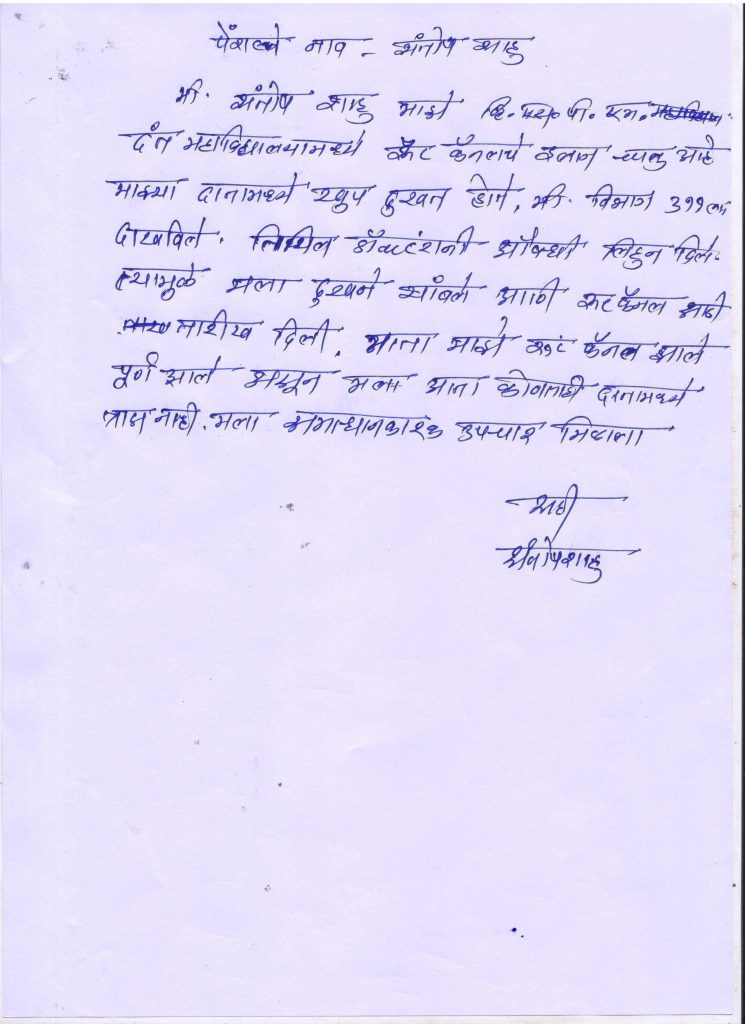 पेशंटचे नाव - संतोष साहु
मी. संतोष साहु माझे व्हि. एस. पी. एम.
दंत महाविद्यालयामध्ये रूट कॅनलचे इलाज चालु आहे
माझ्या दातामध्ये खुप दुखत होते, मी. विभाग ३११ ला
दाखविले. तिथिल डॉक्टरांनी औषधी लिहुन दिले
त्यामुळे मला दुखने थांबले आणि रूट कॅनल साठी
तारीख दिली. आता माझे रूट कॅनल झाले
पूर्ण झाले असून मला आता कोणताही दातामध्ये
त्रास नाही. मला समाधानकारक उपचार मिळाला
सही
संतोष साहु